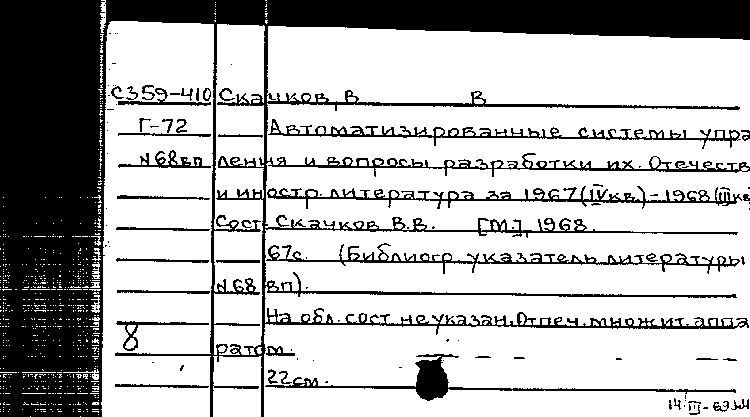 С359-410 Скачков, В В
Г-72 Автоматизированные системы упра
N68вп ления и вопросы разработки их. Отечеств
и иностр. литература за 1967(IV кв.)-1968(III кв
Сост. Скачков В.В. [М.], 1968.
67с. (Библиогр. указатель литературы
N.68 вп).
На обл. сост. не указан. Отпеч. множит. аппа
8 ратом.
22см.
14 III-69